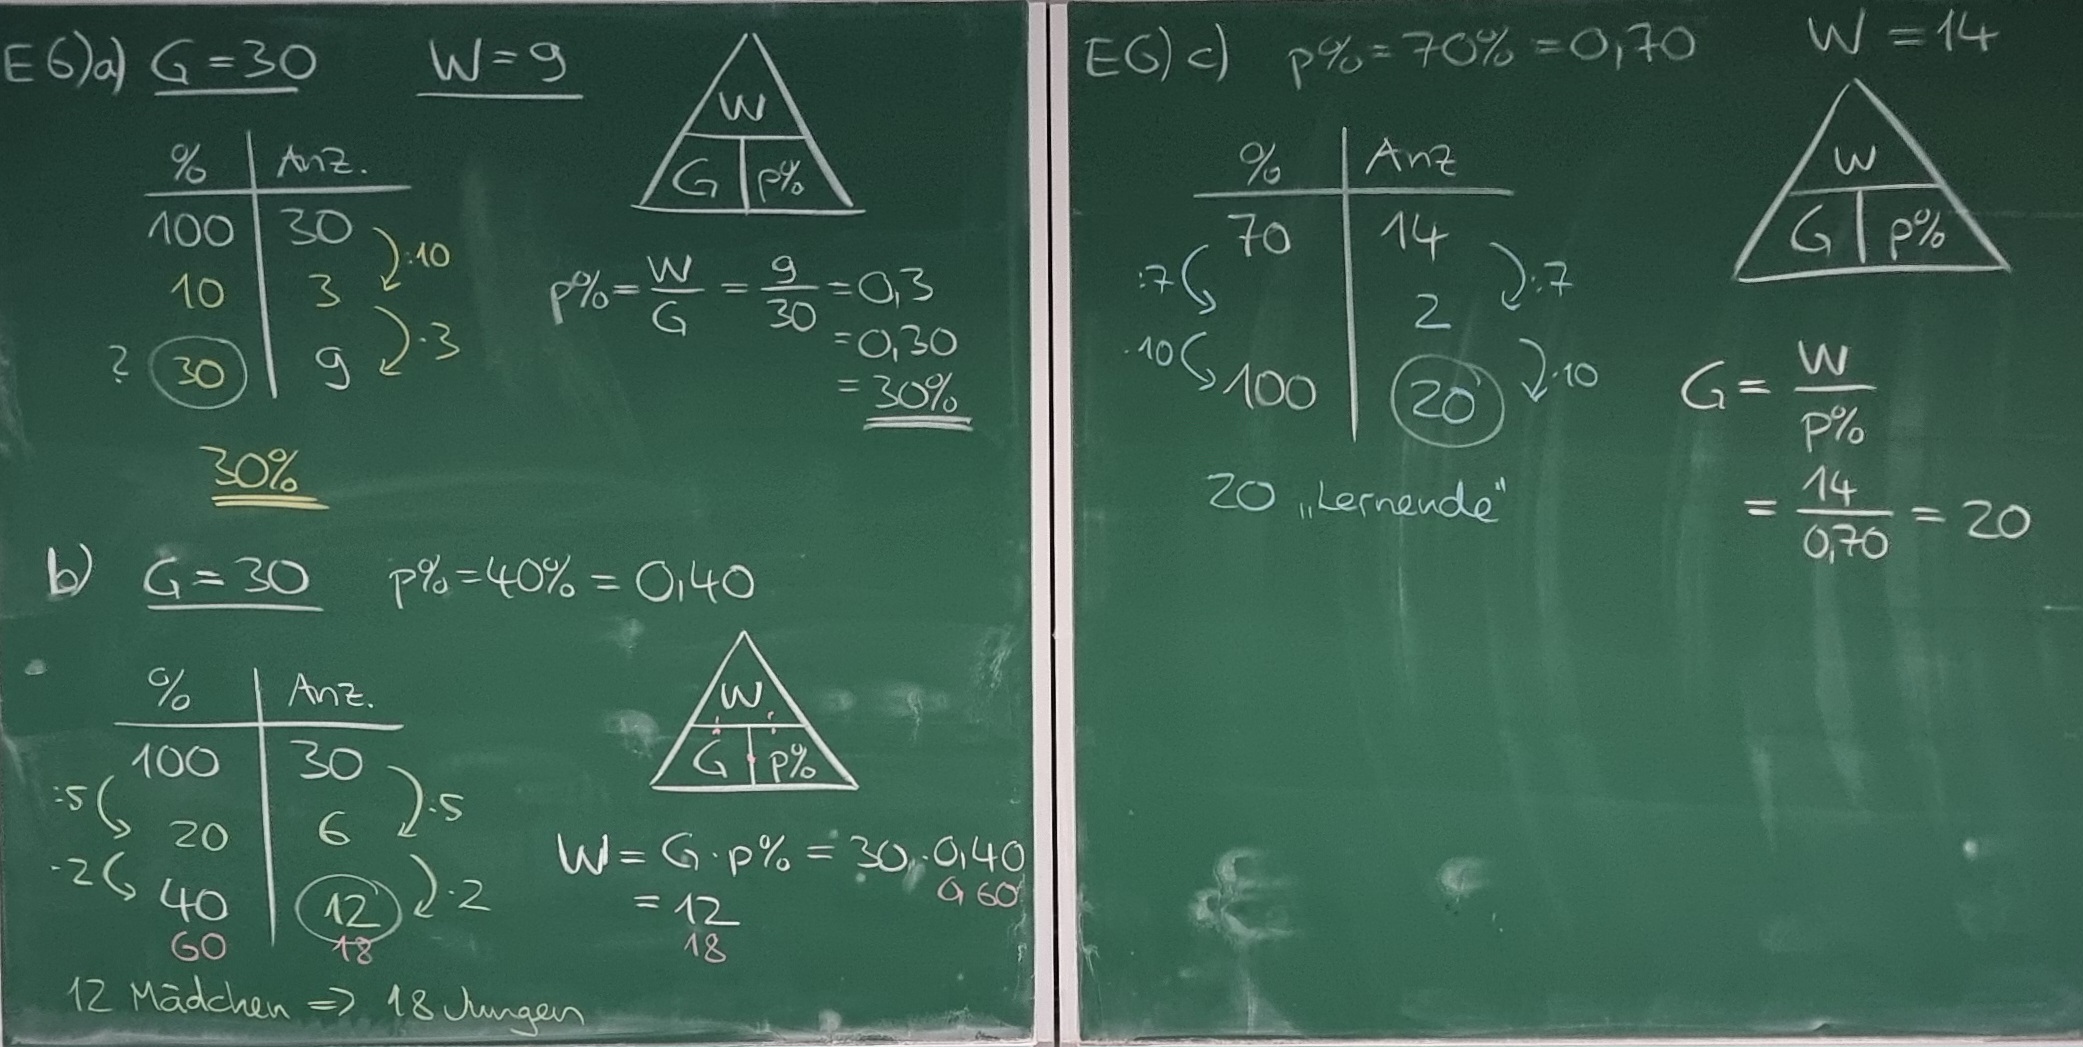 E6)a) G = 30 W = 9
% | Anz.
100 | 30
:10
10 | 3
·3
? 30 | 9
30%
W
G | p%
p% = W/G = 9/30 = 0,3
= 0,30
= 30%
b) G = 30 p% = 40% = 0,40
% | Anz.
100 | 30
:5 :5
20 | 6
·2 ·2
40 | 12
60 | 18
12 Mädchen => 18 Jungen
W
G | p%
W = G · p% = 30 · 0,40
0,60
= 12
18
E6) c) p% = 70% = 0,70 W = 14
% | Anz
70 | 14
:7 :7
2
·10 ·10
100 | 20
20 „Lernende“
W
G | p%
G = W/p%
= 14/0,70 = 20